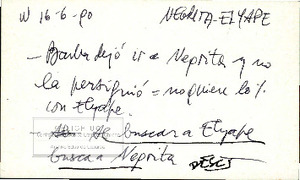 W 16-6-90 NEGRITA-ELYAPE
- Barba dejó ir a Negrita y no
la persiguió = no quiere lo %
con Elyape.
de buscar a Elyape
busca a Negrita